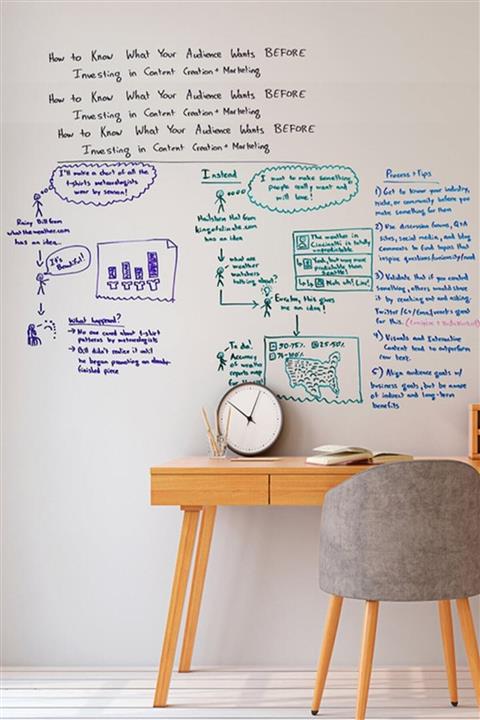 How to Know What Your Audience Wants BEFORE
Investing in Content Creation + Marketing
How to Know What Your Audience Wants BEFORE
Investing in Content Creation + Marketing
How to Know What Your Audience Wants BEFORE
Investing in Content Creation + Marketing
I'll make a chart of all the
t-shirts meteorologists
wear by season!
Rainy Bill from
whattheweather.com
has an idea...
It's
Beautiful!
What happened?
→ No one cared about t-shirt
patterns by meteorologists
→ Bill didn't realize it until
he began promoting an
finished piece
Instead
I want to make something
people really want and
will love!
Hailstorm Hal from
kingofclimate.com
has an idea
what are
weather
watchers
talking about?
The weather in
Cincinnati is totally
unpredictable
Yeah, but way more
predictable than
Seattle!
Nuh uh! Liar!
Eureka, this gives
me an idea!
To da!
Accuracy
of weather
reports map
for the
50-75%
25-50%
75-100%
Process + Tips
1) Get to know your industry,
niche, or community before you
make something for them
2) Use discussion forums, Q+A
sites, social media, and blog
comments to find topics that
inspire questions/curiosity/need
3) Validate that if you created
something, others would share
it by reaching out and asking.
Twitter/G+/Email works great
for this.
4) Visuals and Interactive
Content tend to outperform
raw text.
5) Align audience goals w/
business goals, but be aware
of indirect and long-term
benefits